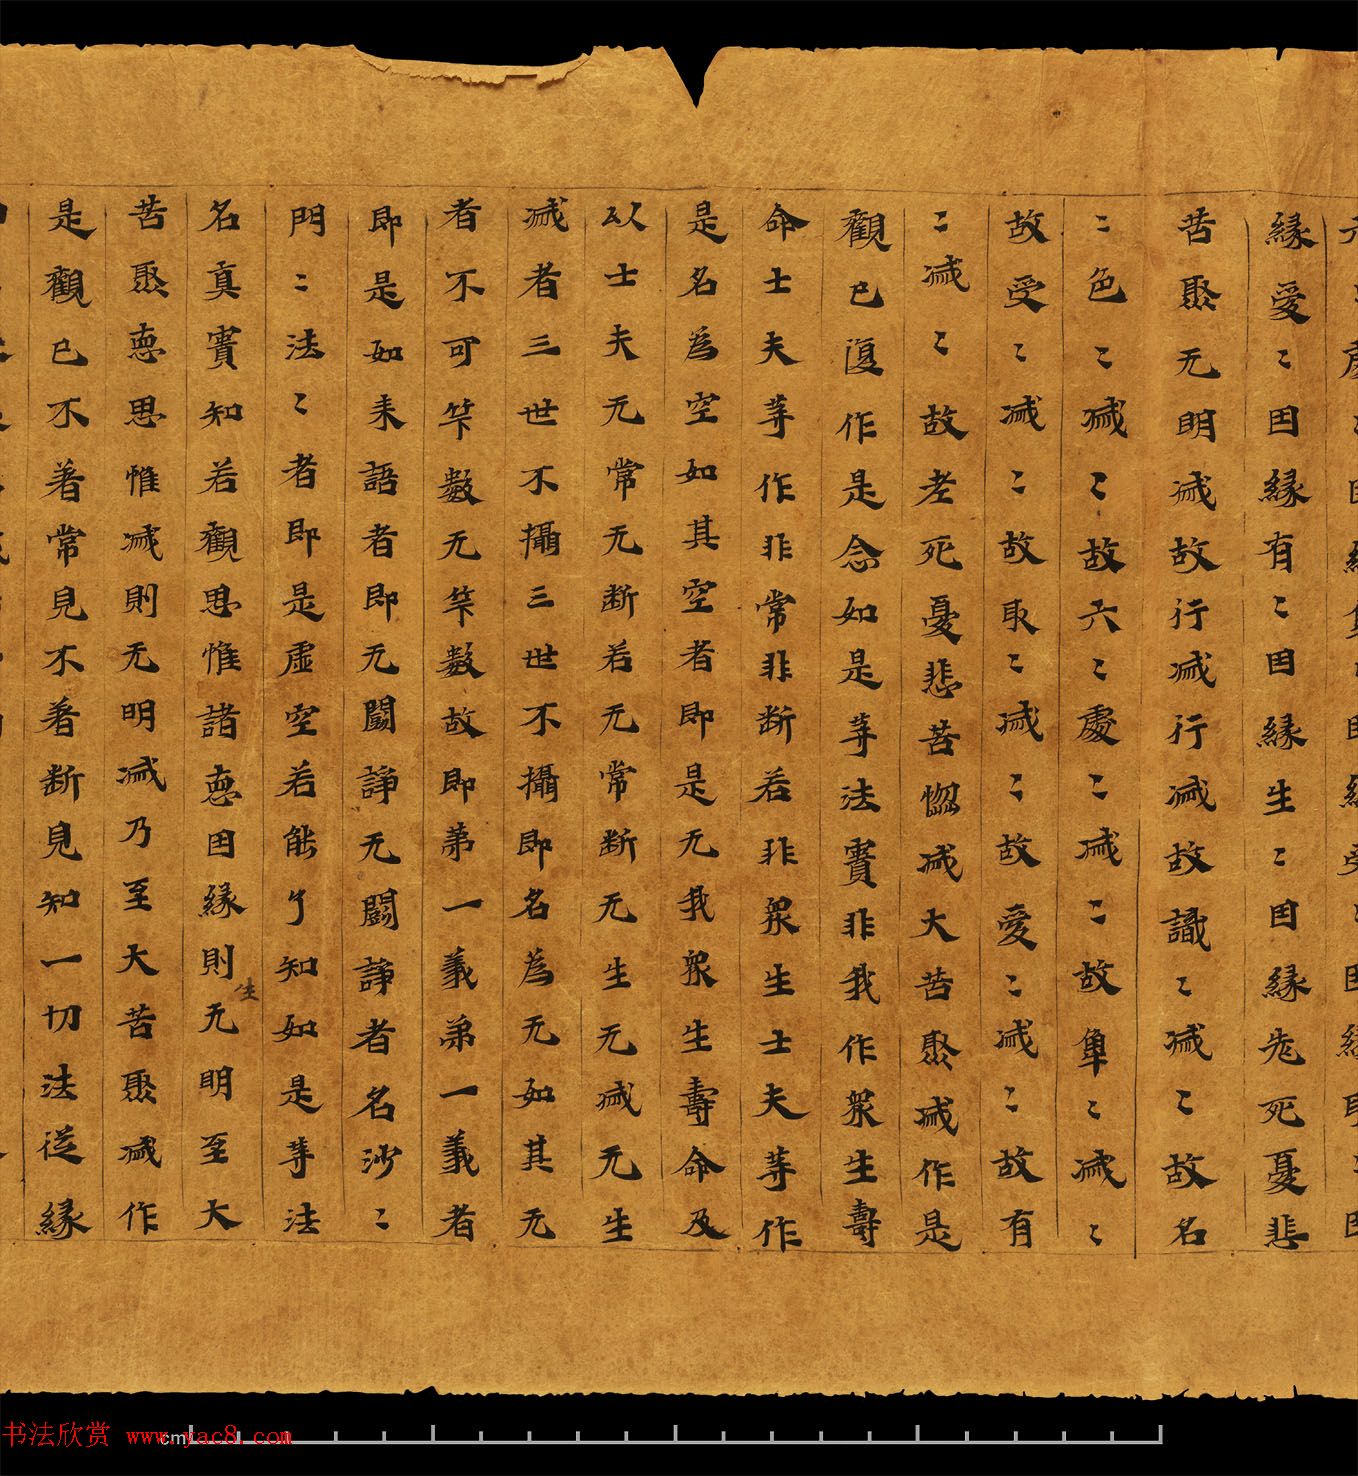 緣愛〻因緣有〻因緣生〻因緣老死憂悲
苦聚无明滅故行滅行滅故識〻滅〻故名
〻色〻滅〻故六〻處〻滅〻故〻滅〻
故受〻滅〻故取〻滅〻故愛〻滅〻故有
〻滅〻故老死憂悲苦惱滅大苦聚滅作是
觀已復作是念如是等法實非我作衆生壽
命士夫等作非常非断若非衆生士夫等作
是名為空如其空者即是无我衆生壽命及
以士夫无常无断若无常断无生无滅无生
滅者三世不攝三世不攝即名為无如其无
者不可筭數无筭數故即第一義第一義者
即是如来語者即无闘諍无闘諍者名沙〻
門〻法〻者即是虛空若能了知如是等法
名真實知若觀思惟諸惡因緣則生无明至大
苦聚惡思惟滅則无明滅乃至大苦聚滅作
是觀已不著常見不著断見知一切法從緣
书法欣赏 www.yac8.com
cm